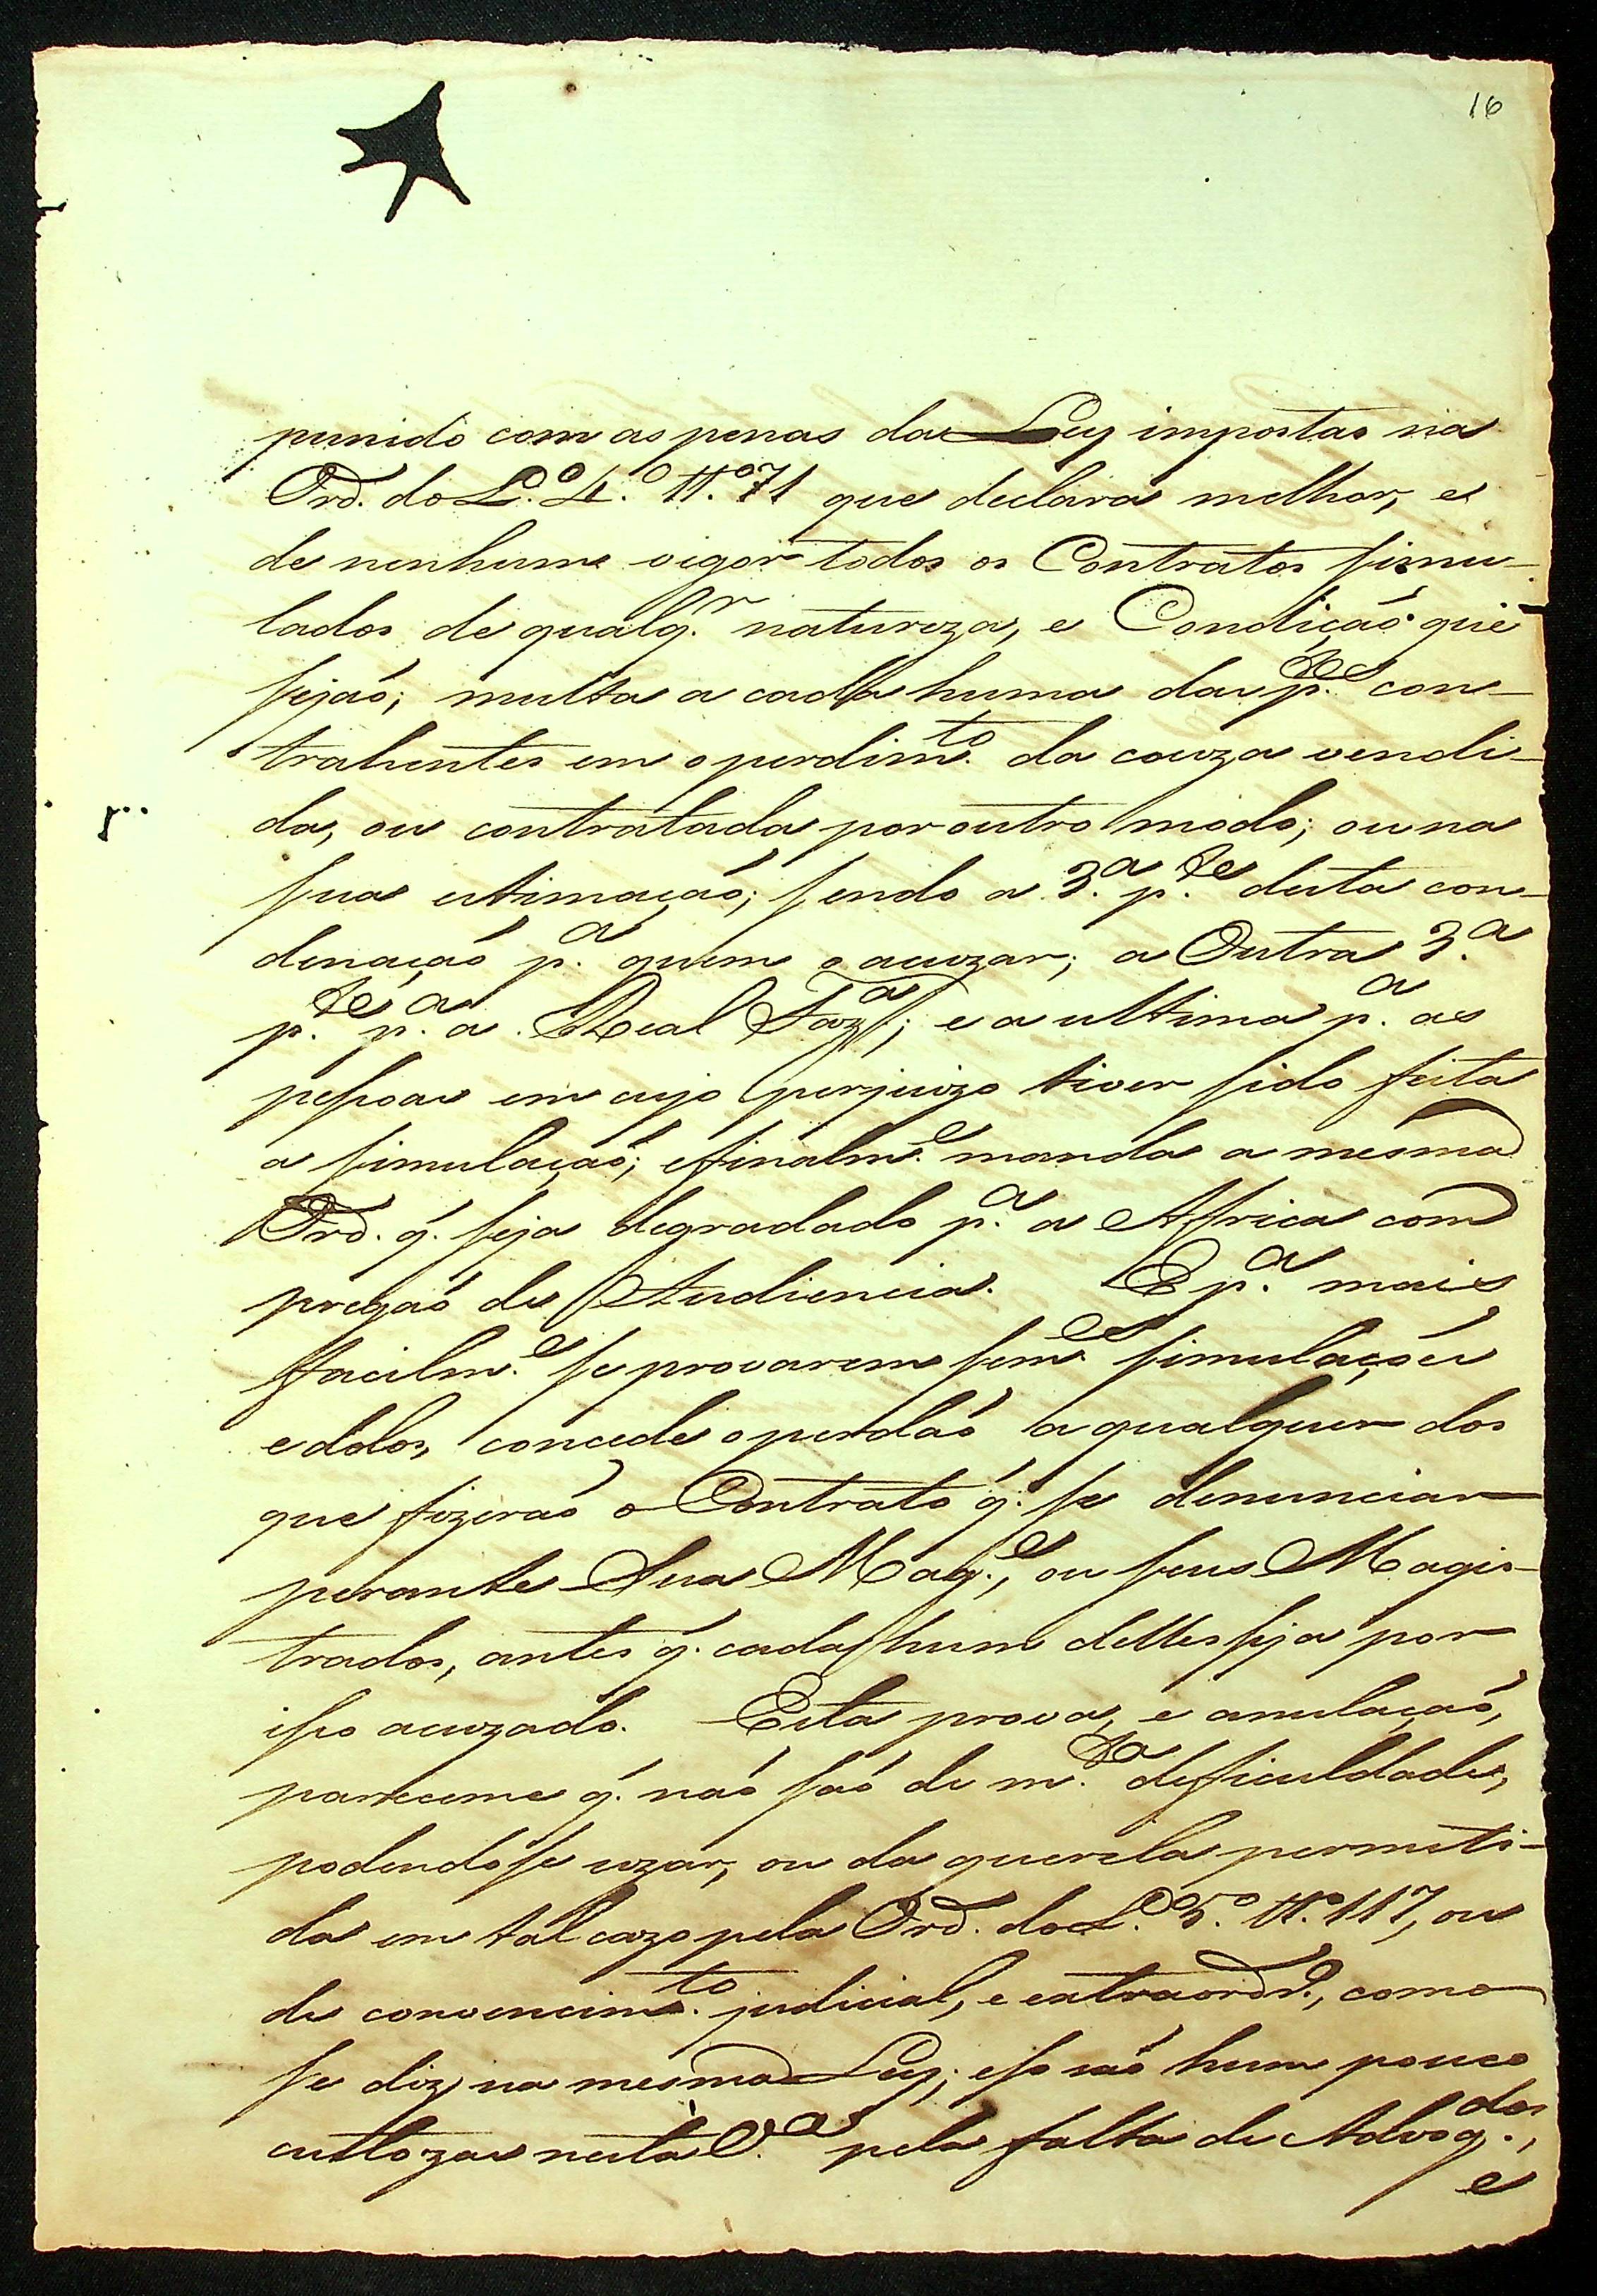 16
punido com as penas da Ley impostas na
Ord. do L.º 4.º tt.º 71 que declara melhor, e
de nenhum vigor todos os Contratos simu-
lados de qualq.r natureza, e Condição que
sejaõ; multa a cada huma das p.tes con-
trahentes em o perdim.to da couza vendi-
da, ou contratada por outro modo; ou na
sua estimaçaõ; sendo a 3.ª p.te desta con-
denaçaõ p.ª quem o acuzar; a Outra 3.ª
p.te p.ª a Real Faz.ª; e a ultima p.ª as
pessoas em cujo perjuizo tiver sido feita
a simulaçaõ; e finalm.e manda a mesma
Ord. q. seja degradado p.ª a Africa com
pregaõ de Audiencia. E p.ª mais
facilm.e se provarem sem.es simulações
e dolos, concede o perdaõ a qualquer dos
que fizeraõ o Contrato q. se denunciar
perante Sua Mag.e, ou seus Magis-
trados, antes q. cada hum delles seja por
isso acuzado. Esta prova, e anulaçaõ,
pareceme q. naõ saõ de m.ta deficuldade,
podendose uzar, ou da querela permiti-
da em tal cazo pela Ord. do L.º 5.º tt.º 117, ou
de convencim.to judicial, e extraordr.º, como
se diz na mesma Ley; e so saõ hum pouco
custozas nesta V.ª pela falta de Advog.dos,
e